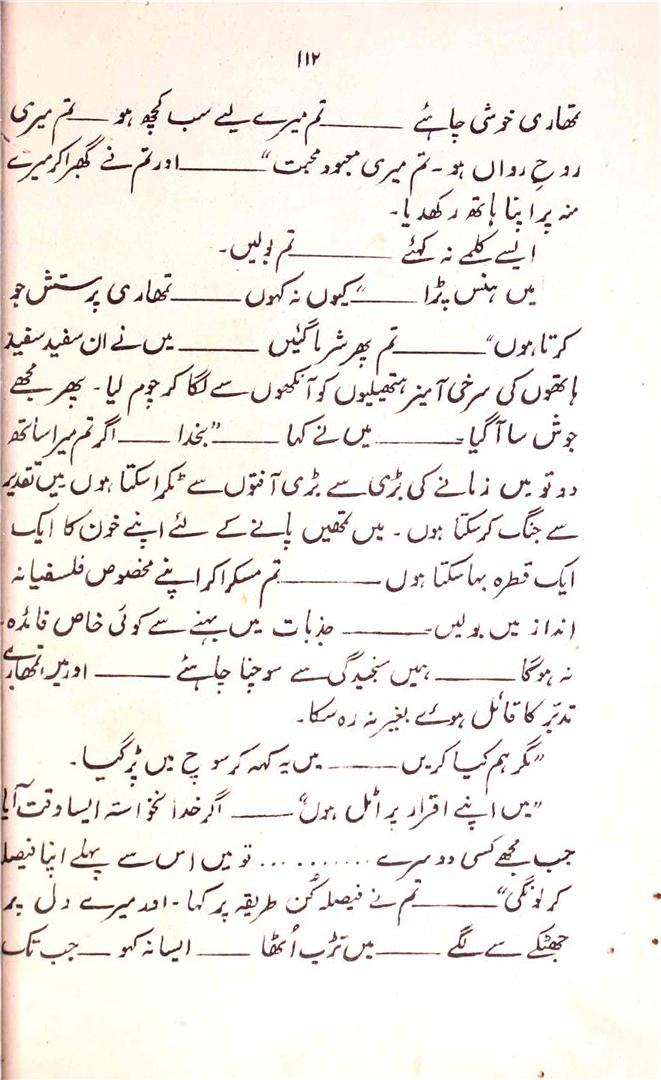 ۱۱۲
تمھاری خوشی چاہئے ——— تم میرے لیے سب کچھ ہو —— تم میری
روحِ رواں ہو۔ تم میری معبود محبت“ ——— اور تم نے گھبرا کر میرے
منہ پر اپنا ہاتھ رکھدیا۔
ایسے کلمے نہ کہئے ——— تم بولیں۔
میں ہنس پڑا ——— ”کیوں نہ کہوں ——— تمھاری پرستش جو
کرتا ہوں“ ——— تم پھر شرما گئیں ——— میں نے ان سفید سفید
ہاتھوں کی سرخی آمیز ہتھیلیوں کو آنکھوں سے لگا کر چوم لیا۔ پھر مجھے
جوش سا آگیا۔ ——— میں نے کہا ——— ”بخدا —— اگر تم میرا ساتھ
دو تو میں زمانے کی بڑی سے بڑی آفتوں سے ٹکرا سکتا ہوں میں تقدیر
سے جنگ کر سکتا ہوں۔ میں تمھیں پانے کے لئے اپنے خون کا ایک
ایک قطرہ بہا سکتا ہوں ——— تم مسکرا کر اپنے مخصوص فلسفیانہ
انداز میں بولیں۔ ——— جذبات میں بہنے سے کوئی خاص فائدہ
نہ ہوگا ——— ہمیں سنجیدگی سے سوچنا چاہئے ——— اور میں تمھارے
تدبّر کا قائل ہوئے بغیر نہ رہ سکا۔
”مگر ہم کیا کریں ——— میں یہ کہہ کر سوچ میں پڑ گیا۔
”میں اپنے اقرار پر اٹل ہوں“ ——— اگر خدا نخواستہ ایسا وقت آیا
جب مجھے کسی دوسرے .......... تو میں اس سے پہلے اپنا فیصلہ
کر لونگی“ ——— تم نے فیصلہ کُن طریقہ پر کہا۔ اور میرے دل پر
جھٹکے سے لگے ——— میں تڑپ اُٹھا ——— ایسا نہ کہو —— جب تک